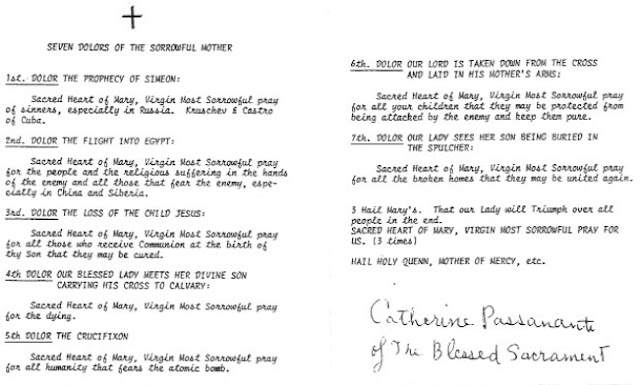 SEVEN DOLORS OF THE SORROWFUL MOTHER
1st. DOLOR THE PROPHECY OF SIMEON:
Sacred Heart of Mary, Virgin Most Sorrowful pray
of sinners, especially in Russia. Kruschev & Castro
of Cuba.
2nd. DOLOR THE FLIGHT INTO EGYPT:
Sacred Heart of Mary, Virgin Most Sorrowful pray
for the people and the religious suffering in the hands
of the enemy and all those that fear the enemy, espe-
cially in China and Siberia.
3rd. DOLOR THE LOSS OF THE CHILD JESUS:
Sacred Heart of Mary, Virgin Most Sorrowful pray
for all those who receive Communion at the birth of
thy Son that they may be cured.
4th DOLOR OUR BLESSED LADY MEETS HER DIVINE SON
CARRYING HIS CROSS TO CALVARY:
Sacred Heart of Mary, Virgin Most Sorrowful pray
for the dying.
5th DOLOR THE CRUCIFIXON
Sacred Heart of Mary, Virgin Most Sorrowful pray
for all humanity that fears the atomic bomb.
6th. DOLOR OUR LORD IS TAKEN DOWN FROM THE CROSS
AND LAID IN HIS MOTHER'S ARMS:
Sacred Heart of Mary, Virgin Most Sorrowful pray
for all your children that they may be protected from
being attacked by the enemy and keep them pure.
7th. DOLOR OUR LADY SEES HER SON BEING BURIED IN
THE SPULCHER:
Sacred Heart of Mary, Virgin Most Sorrowful pray
for all the broken homes that they may be united again.
3 Hail Mary's. That our Lady will Triumph over all
people in the end.
SACRED HEART OF MARY, VIRGIN MOST SORROWFUL PRAY FOR
US. (3 times)
HAIL HOLY QUENN, MOTHER OF MERCY, etc.
Catherine Passanante
of The Blessed Sacrament